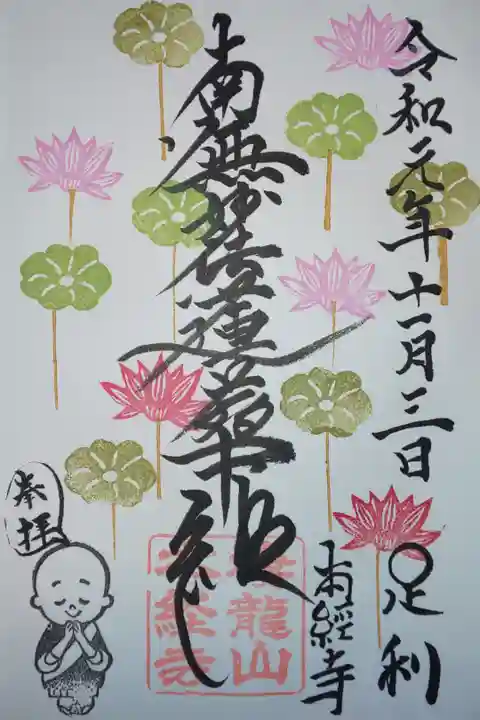 令和元年十一月三日
足利
本經寺
南無妙法蓮華経
龍山
本経寺
奉拝